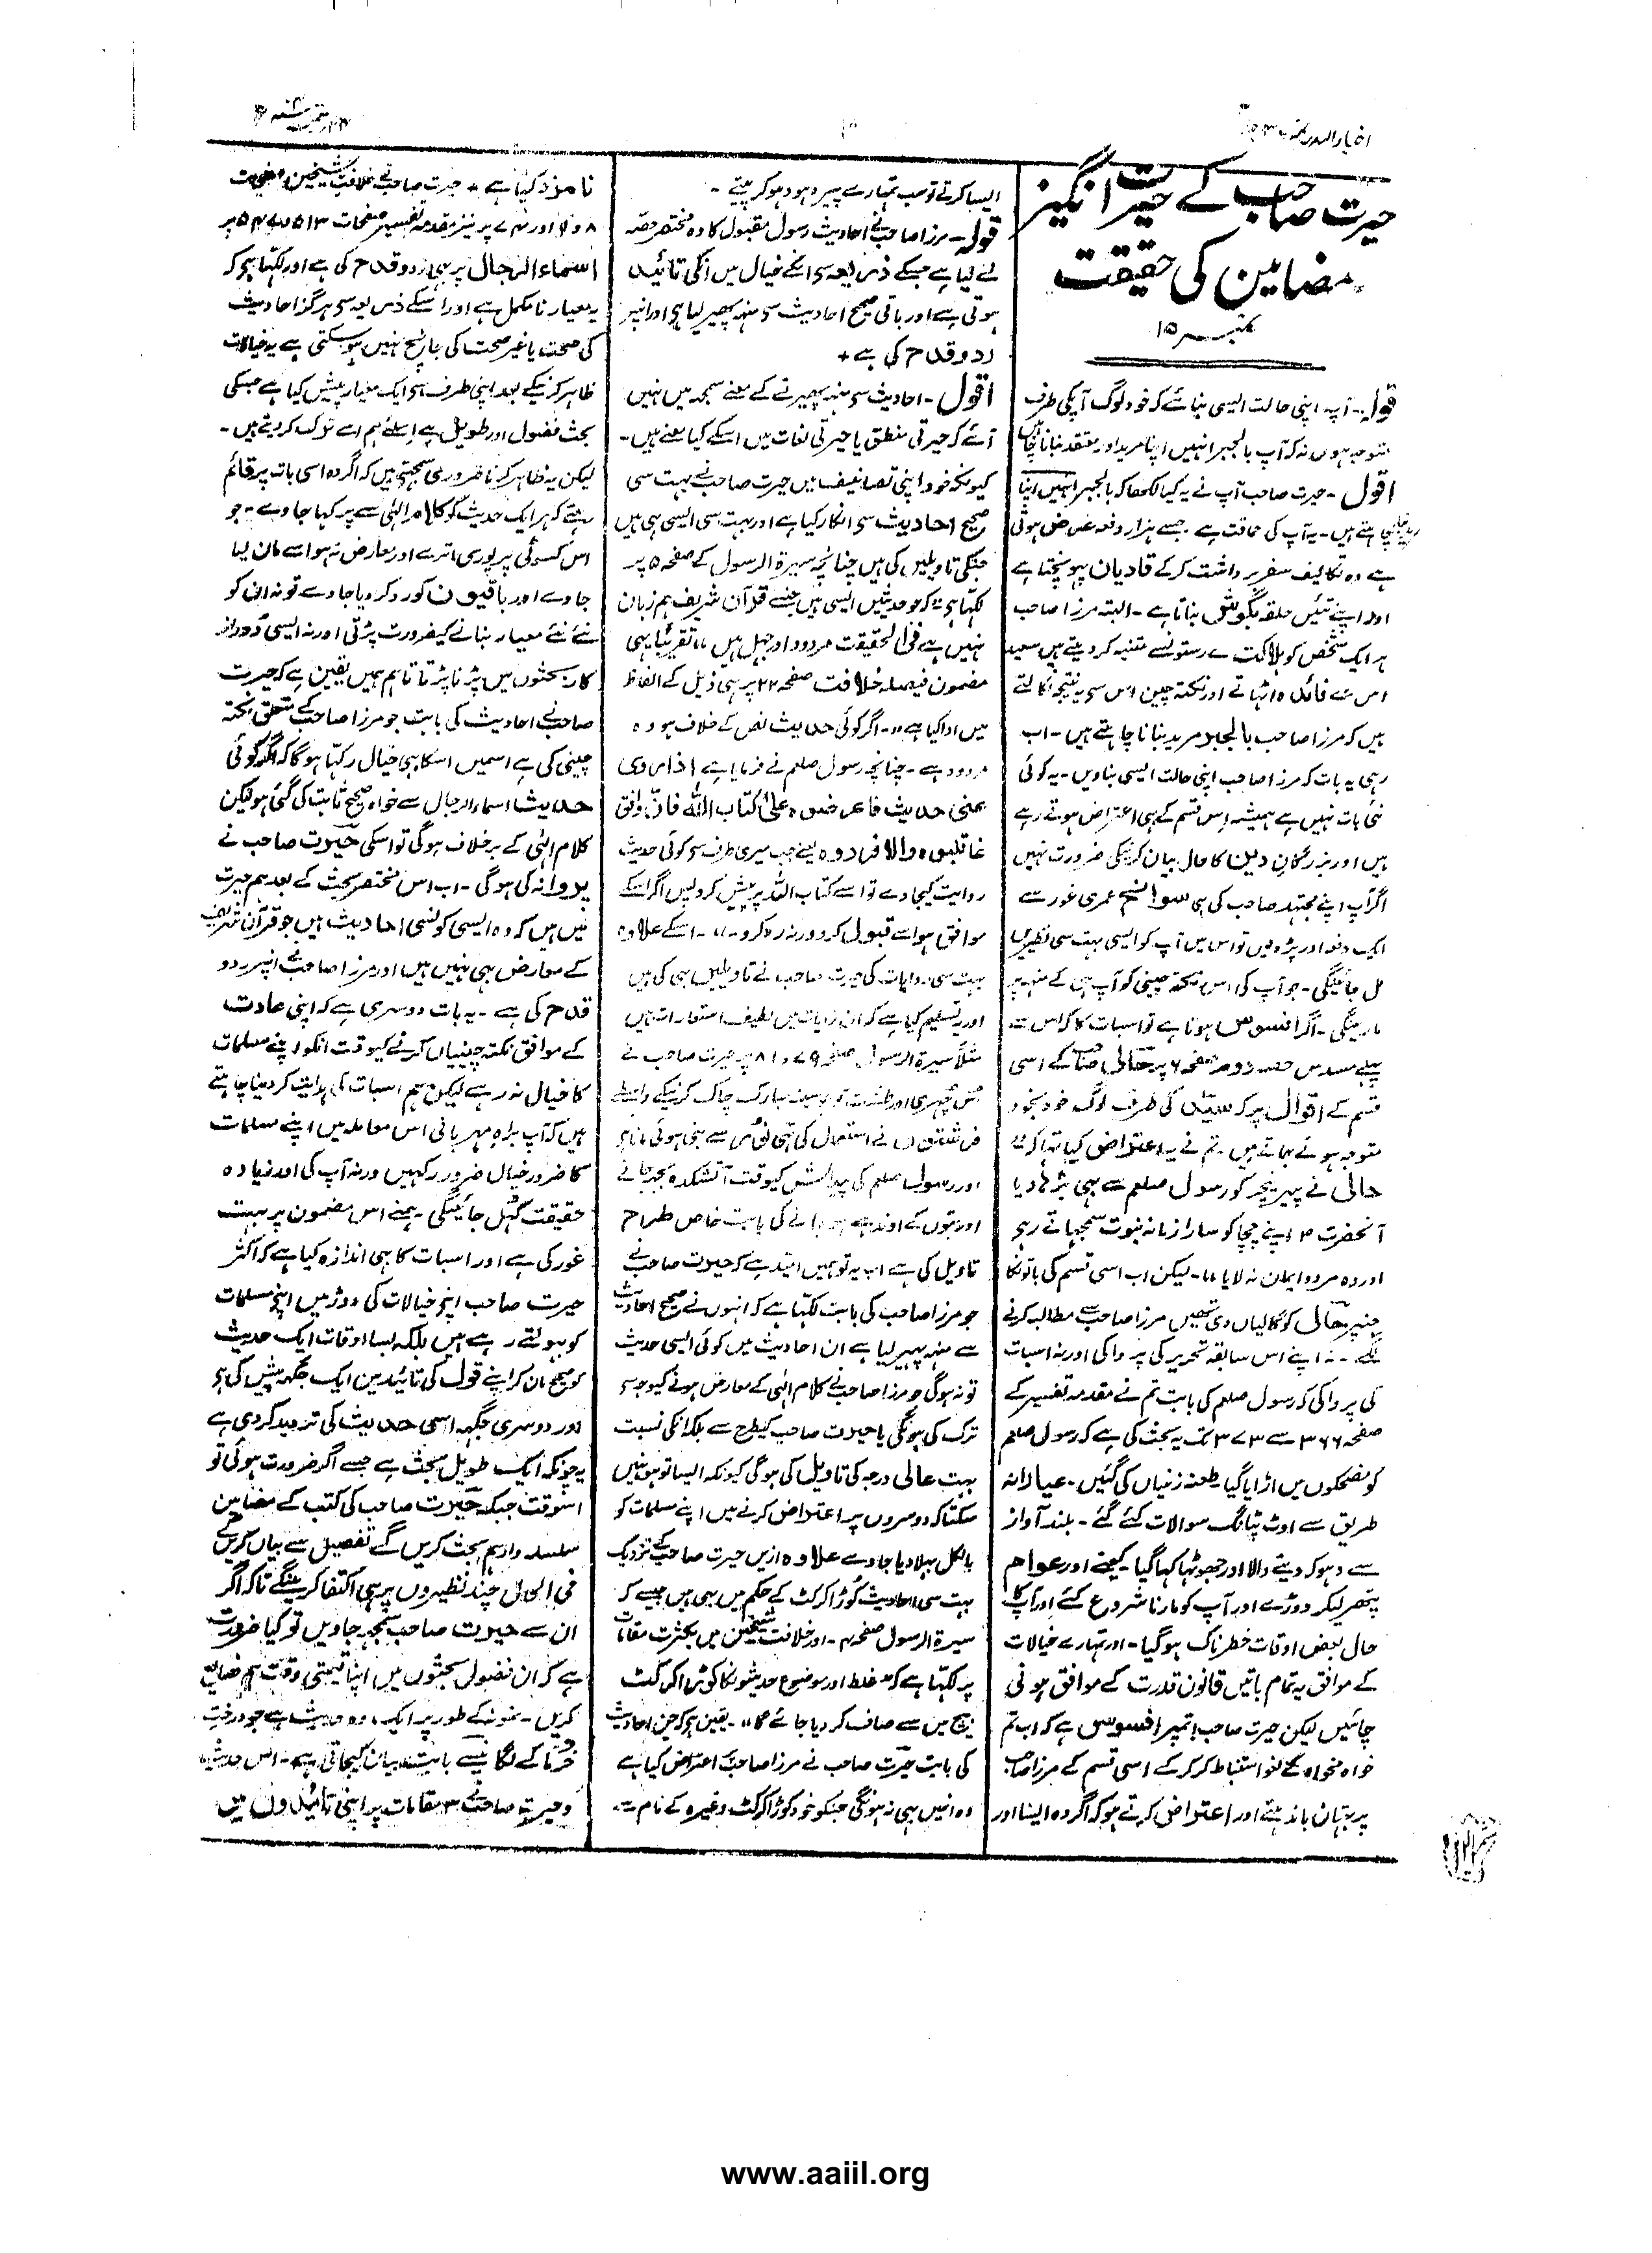 اخبار البدر نمبر
۱۰
حیرت صاحب کے حیرت انگیز
مضامین کی حقیقت
نمبر ۱۵
قولہ۔ آپ اپنی حالت ایسی بنائیے کہ خود لوگ آپکی طرف
متوجہ ہوں نہ کہ آپ بالجبر انہیں اپنا مرید اور معتقد بنانا چاہیں
اقول۔ حیرت صاحب آپ نے یہ کیا لکھا کہ بالجبر انہیں اپنا
چاہتے ہیں۔ یہ آپ کی حماقت ہے جسے ہزار دفعہ غرض ہوتی
ہے وہ تکالیف سفر برداشت کر کے قادیان پہونچتا ہے
اور اپنے تئیں حلقہ بگوش بناتا ہے۔ البتہ مرزا صاحب
ہر ایک شخص کو ہلاکت کے رستونسے متنبہ کر دیتے ہیں سعید
اس سے فائدہ اٹھاتے اور نکتہ چین اس سے یہ نتیجہ نکالتے
ہیں کہ مرزا صاحب بالجبر مرید بنانا چاہتے ہیں۔ اب
رہی یہ بات کہ مرزا صاحب اپنی حالت ایسی بناویں۔ یہ کوئی
نئی بات نہیں ہے ہمیشہ اس قسم کے ہی اعتراض ہوتے رہے
ہیں اور بزرگان دین کا حال بیان کرنیکی ضرورت نہیں
اگر آپ اپنے مجتہد صاحب کی ہی سوانح عمری غور سے
ایک دفعہ اور پڑھیں تو اس میں آپ کو ایسی بہت سی نظیریں
مل جائینگی۔ جو آپ کی اس نکتہ چینی کو آپ ہی کے منہ پر
مارینگی۔ اگر افسوس ہوتا ہے تو اسبات کا کہ اس سے
پہلے مسدس حصہ دوم صفحہ ۶ پر حالی صاحب کے اسی
قسم کے اقوال پر کہ سید کی طرف لوگ خود بخود
متوجہ ہوئے جاتے ہیں۔ تم نے یہ اعتراض کیا تھا کہ
حالی نے پیر نیچر کو رسول صلعم سے بھی بڑھا دیا
آنحضرت ؐ اپنے چچا کو سارا زمانہ نبوت سمجھاتے رہے
اور وہ مردود ایمان نہ لایا،،۔ لیکن اب اسی قسم کی باتونکا
جنپر حالی کو گالیاں دی تھیں مرزا صاحب سے مطالبہ کرنے
لگے۔ نہ اپنے اس سابقہ تحریر کی پرواکی اور نہ اسبات
کی پروا کی کہ رسول صلعم کی بابت تم نے مقدمہ تفسیر کے
صفحہ ۳۶۶ سے ۳۷۳ تک یہ بحث کی ہے کہ رسول صلعم
کو مضحکوں میں اڑایا گیا طعنہ زنیاں کی گئیں۔ عیارانہ
طریق سے اوٹ پٹانگ سوالات کئے گئے۔ بلند آواز
سے دہوکہ دینے والا اور جھوٹہا کہا گیا۔ کمینے اور عوام
پتھر لیکر دوڑے اور آپ کو مارنا شروع کئے اور آپ کا
حال بعض اوقات خطرناک ہو گیا۔ اور تمہارے خیالات
کے موافق یہ تمام باتیں قانون قدرت کے موافق ہونی
چاہئیں لیکن حیرت صاحب تمپر افسوس ہے کہ اب تم
خواہ مخواہ کے لغو استنباط کر کر کے اسی قسم کے مرزا صاحب
پر بہتان باندھتے اور اعتراض کرتے ہو کہ اگر وہ ایسا اور
ایسا کرتے تو سب تمہارے پیرو ہود ہو کر پیتے۔
قولہ۔ مرزا صاحب نے احادیث رسول مقبول کا وہ مختصر حصہ
لے لیا ہے جسکے ذریعہ سے انکے خیال میں انکی تائید
ہوتی ہے اور باقی صحیح احادیث سے منہہ پھیر لیا ہے اور انپر
ردو قدح کی ہے +
اقول۔ احادیث سے منہہ پھیرنے کے معنے سمجھ میں نہیں
آئے کہ حیرتی منطق یا حیرتی لغات میں اسکے کیا معنے ہیں۔
کیونکہ خود اپنی تصانیف میں حیرت صاحب نے بہت سی
صحیح احادیث سے انکار کیا ہے اور بہت سی ایسی ہی ہیں
جنکی تاویلیں کی ہیں چنانچہ سیرۃ الرسول کے صفحہ ۵ پر
لکہا ہے کہ جو حدیثیں ایسی ہیں جنسے قرآن شریف ہم زبان
نہیں ہے فی الحقیقت مردود اور جہل ہیں،، تقریباً یہی
مضمون فیصلہ خلافت صفحہ ۲۲ پر بھی ذیل کے الفاظ
میں ادا کیا ہے،،۔ اگر کوئی حدیث نص کے خلاف ہو وہ
مردود ہے۔ چنانچہ رسول صلعم نے فرمایا ہے اذا روی
عنی حدیث فاعرضوہ علی کتاب اللہ فان وافق
فاقبلوہ والا فردوہ یعنے جب میری طرف سے کوئی حدیث
روایت کیجاوے تو اسے کتاب اللہ پر پیش کرو پس اگر اسکے
موافق ہو اسے قبول کرو ورنہ رد کرو۔،،۔ اسکے علاوہ
بہت سی روایات کی حیرت صاحب نے تاویلیں بھی کی ہیں
اور یہ تسلیم کیا ہے کہ ان روایات میں لطیف استعارات ہیں
مثلاً سیرۃ الرسول صفحہ ۷۹ و ۸۱ پر حیرت صاحب نے
چھری اور طشت جو سینہ مبارک چاک کرنیکے واسطے
فرشتوں نے استعمال کی تھی نور سے بنی ہوئی مانا ہے
اور رسول صلعم کی پیدائش کیوقت آتشکدہ بجھ جانے
اور بتوں کے اوندھے ہو جانے کی بابت خاص طرح
تاویل کی ہے اب یہ تو ہمیں امید ہے کہ حیرت صاحب نے
جو مرزا صاحب کی بابت لکہا ہے کہ انہوں نے صحیح احادیث
سے منہہ پھیر لیا ہے ان احادیث میں کوئی ایسی حدیث
تو نہ ہوگی جو مرزا صاحب نے کلام الٰہی کے معارض ہونے کیوجہ سے
ترک کی ہونگی یا حیرت صاحب کیطرح سے بلکہ انکی نسبت
بہت عالی درجہ کی تاویل کی ہوگی کیونکہ ایسا تو ہو نہیں
سکتا کہ دوسروں پر اعتراض کرنے میں اپنے مسلمات کو
بالکل بھلا دیا جاوے علاوہ ازیں حیرت صاحب کے نزدیک
بہت سی احادیث کوڑا کرکٹ کے حکم میں بھی ہیں جیسے کہ
سیرۃ الرسول صفحہ ۔ اور خلافت شیخین میں بکثرت مقامات
پر لکہا ہے کہ غلط اور موضوع حدیثونکا کوڑا کرکٹ
بیچ میں سے صاف کر دیا جائے گا،،۔ یقین ہے کہ جن احادیث
کی بابت حیرت صاحب نے مرزا صاحب پر اعتراض کیا ہے
وہ انہیں بھی نہ ہونگی جنکو خود کوڑا کرکٹ وغیرہ کے نام سے
نامزد کیا ہے + حیرت صاحب نے خلافت شیخین
پر نیز مقدمہ تفسیر صفحات ۵۱۳ پر
اسماء الرجال پر بھی ردو قدح کی ہے اور لکہا ہے کہ
یہ معیار نا مکمل ہے اور اسکے ذریعہ سے ہرگز احادیث
کی صحت یا غیر صحت کی جانچ نہیں ہو سکتی ہے یہ خیالات
ظاہر کرنیکے بعد اپنی طرف سے ایک معیار پیش کیا ہے جسکی
بحث فضول اور طویل ہے اسلئے ہم اسے ترک کر دیتے ہیں۔
لیکن یہ ظاہر کرنا ضروری سمجھتے ہیں کہ اگر وہ اسی بات پر قائم
رہتے کہ ہر ایک حدیث کو کلام الٰہی سے پرکہا جاوے۔ جو
اس کسوٹی پر پوری اترے اور معارض نہ ہو اسے مان لیا
جاوے اور باقیوں کو رد کر دیا جاوے تو نہ ان کو
نئے نئے معیار بنانے کی ضرورت پڑتی اور نہ ایسی دور از
کار بحثوں میں پڑنا پڑتا تاہم ہمیں یقین ہے کہ حیرت
صاحب نے احادیث کی بابت جو مرزا صاحب کے متعلق نکتہ
چینی کی ہے اسمیں اسکا بھی خیال رکہا ہوگا کہ اگر کوئی
حدیث اسماء الرجال سے خواہ صحیح ثابت کی گئی ہو لیکن
کلام الٰہی کے برخلاف ہوگی تو اسکی حیرت صاحب نے
پروا نہ کی ہوگی۔ اب اس مختصر بحث کے بعد ہم حیرت
میں ہیں کہ وہ ایسی کونسی احادیث ہیں جو قرآن شریف
کے معارض بھی نہیں ہیں اور مرزا صاحب نے انپر ردو
قدح کی ہے۔ یہ بات دوسری ہے کہ اپنی عادت
کے موافق نکتہ چینیاں کرنے کیوقت انکو اپنے مسلمات
کا خیال نہ رہے لیکن ہم اسبات کی ہدایت کر دینا چاہتے
ہیں کہ آپ براہ مہربانی اس معاملہ میں اپنے مسلمات
کا ضرور خیال ضرور رکہیں ورنہ آپ کی اور زیادہ
حقیقت کُہل جائیگی۔ ہمنے اس مضمون پر بہت
غور کی ہے اور اسبات کا بھی اندازہ کیا ہے کہ اکثر
حیرت صاحب اپنے خیالات کی دوڑ میں اپنے مسلمات
کو بھولتے رہے ہیں بلکہ بسا اوقات ایک حدیث
کو صحیح مان کر اپنے قول کی تائید میں ایک جگہہ پیش کی ہے
اور دوسری جگہہ اسی حدیث کی تردید کر دی ہے
یہ چونکہ ایک طویل بحث ہے جسے اگر ضرورت ہوئی تو
اسوقت جبکہ حیرت صاحب کی کتب کے مضامین
سلسلہ وار ہم بحث کریں گے تفصیل سے بیان کریں گے
فی الحال چند نظیروں پر ہی اکتفا کرینگے تاکہ اگر
ان سے حیرت صاحب سمجھ جاویں تو کیا ضرورت
ہے کہ ان فضول بحثوں میں اپنا قیمتی وقت ہم ضائع
کریں۔ نمونہ کے طور پر ایک وہ حدیث ہے جو درخت
خرما کے لگانیسے بابت بیان کیجاتی ہے۔ اس حدیث
حیرت صاحب نے ۳ مقامات پر اپنی تائیدوں میں
www.aaiil.org